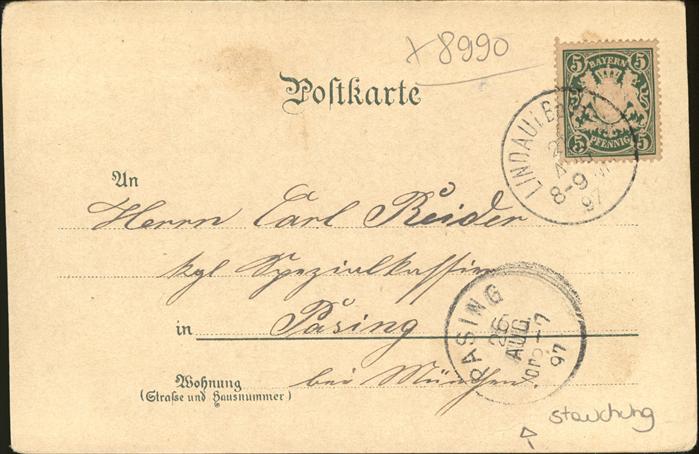 x8990
Postkarte
5 BAYERN 5
5 PFENNIG 5
LINDAU i. B
8-9
97
An
Herrn Carl Reider
kgl Spezialkassier
in Pasing
PASING
26
AUG.
97
Wohnung bei München.
(Straße und Hausnummer)
Stauchung